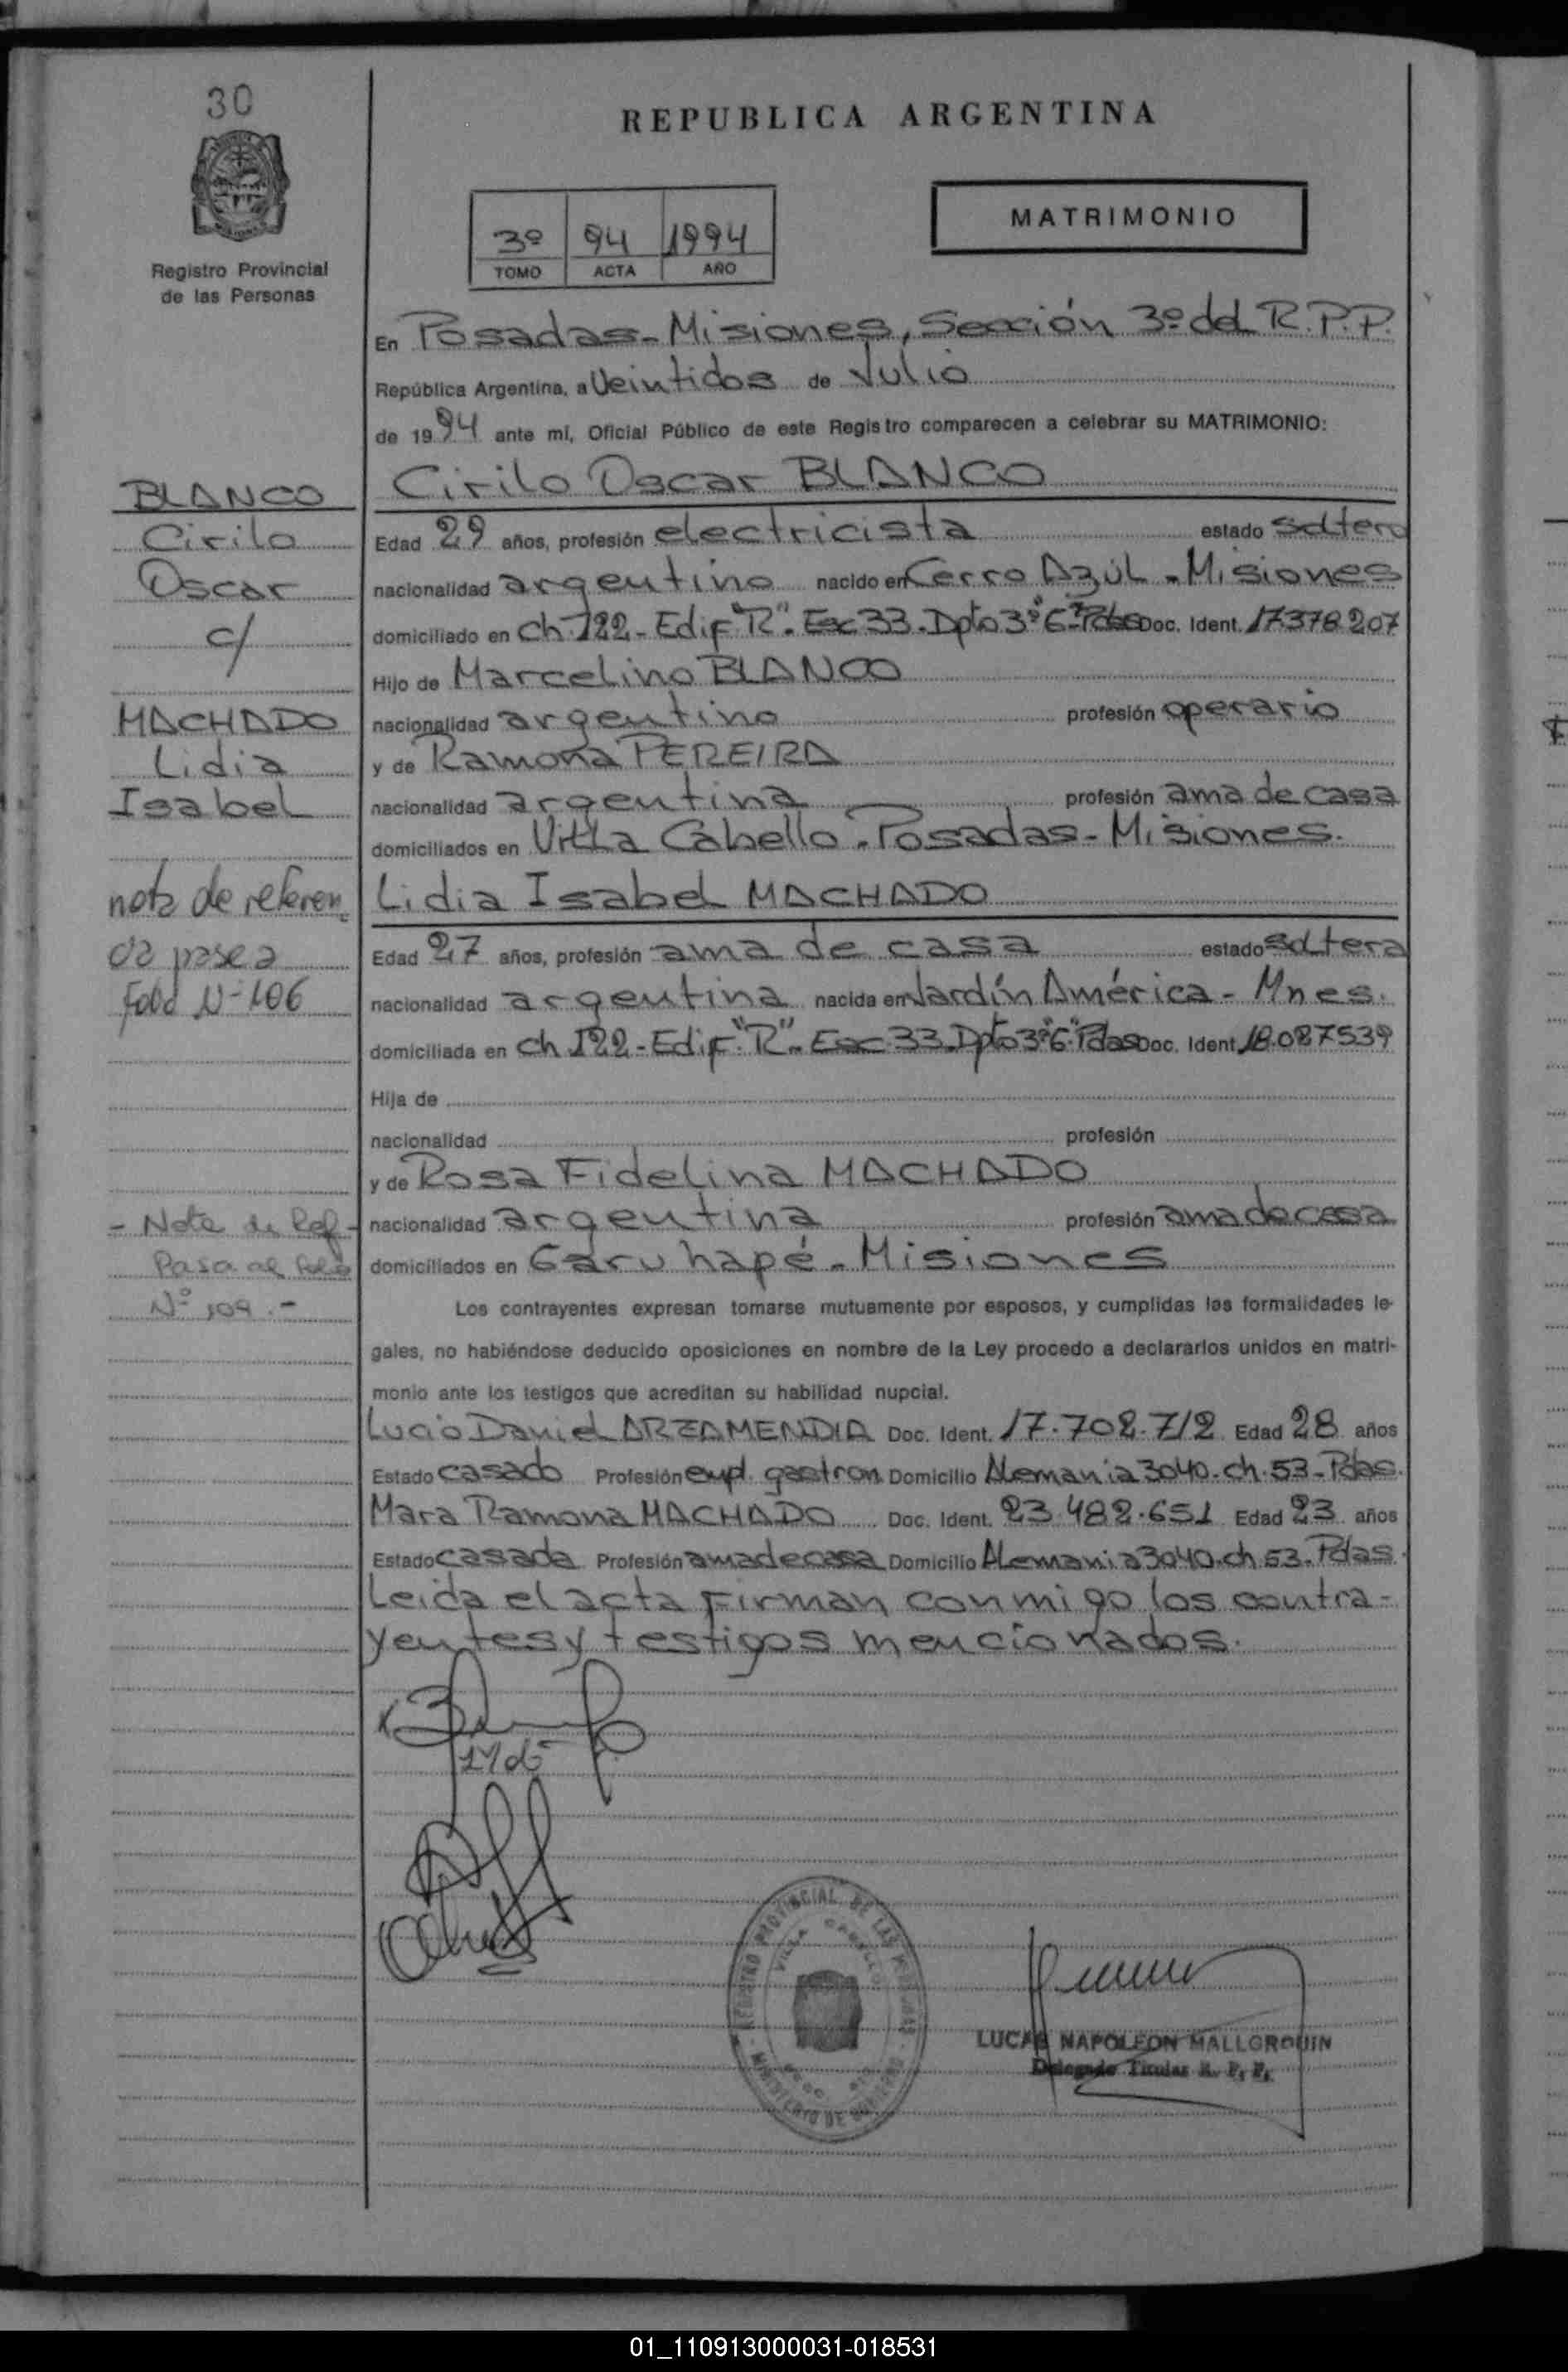 30
REPUBLICA ARGENTINA
MATRIMONIO
3º 94 1994
TOMO ACTA AÑO
Registro Provincial
de las Personas
En Posadas - Misiones, Sección 3º del R.P.P.
República Argentina, a Veintidos de Julio
de 1994 ante mí, Oficial Público de este Registro comparecen a celebrar su MATRIMONIO:
Cirilo Oscar BLANCO
BLANCO
Cirilo
Oscar
c/
MACHADO
Lidia
Isabel
nota de referen
cia pase a
Folio Nº 106
- Nota de Ref -
Pasa al folio
Nº 109.-
Edad 29 años, profesión electricista estado soltero
nacionalidad argentino nacido en Cerro Azúl - Misiones
domiciliado en Ch. 122 - Edif "R" - Esc 33 - Dpto 3º "G" - Pdas Doc. Ident. 17.378.207
Hijo de Marcelino BLANCO
nacionalidad argentino profesión operario
y de Ramona PEREIRA
nacionalidad argentina profesión ama de casa
domiciliados en Villa Cabello - Posadas - Misiones.
Lidia Isabel MACHADO
Edad 27 años, profesión ama de casa estado soltera
nacionalidad argentina nacida en Jardín América - Mnes.
domiciliada en ch 122 - Edif "R" - Esc 33 - Dpto 3º "G" - Pdas Doc. Ident. 18.087539
Hija de
nacionalidad profesión
y de Rosa Fidelina MACHADO
nacionalidad argentina profesión ama de casa
domiciliados en Garuhapé - Misiones
Los contrayentes expresan tomarse mutuamente por esposos, y cumplidas las formalidades le-
gales, no habiéndose deducido oposiciones en nombre de la Ley procedo a declararlos unidos en matri-
monio ante los testigos que acreditan su habilidad nupcial.
Lucio Daniel ARZAMENDIA Doc. Ident. 17.702.712 Edad 28 años
Estado casado Profesión empl. gastron Domicilio Alemania 3040 - ch. 53 - Pdas.
Mara Ramona MACHADO Doc. Ident. 23.482.651 Edad 23 años
Estado casada Profesión ama de casa Domicilio Alemania 3040 - ch. 53 - Pdas.
Leida el acta firman conmigo los contra-
yentes y testigos mencionados.
REGISTRO PROVINCIAL DE LAS PERSONAS
VILLA CABELLO
MINISTERIO DE GOBIERNO
LUCAS NAPOLEON MALLGROUIN
Delegado Titular R. P. P.
01_110913000031-018531